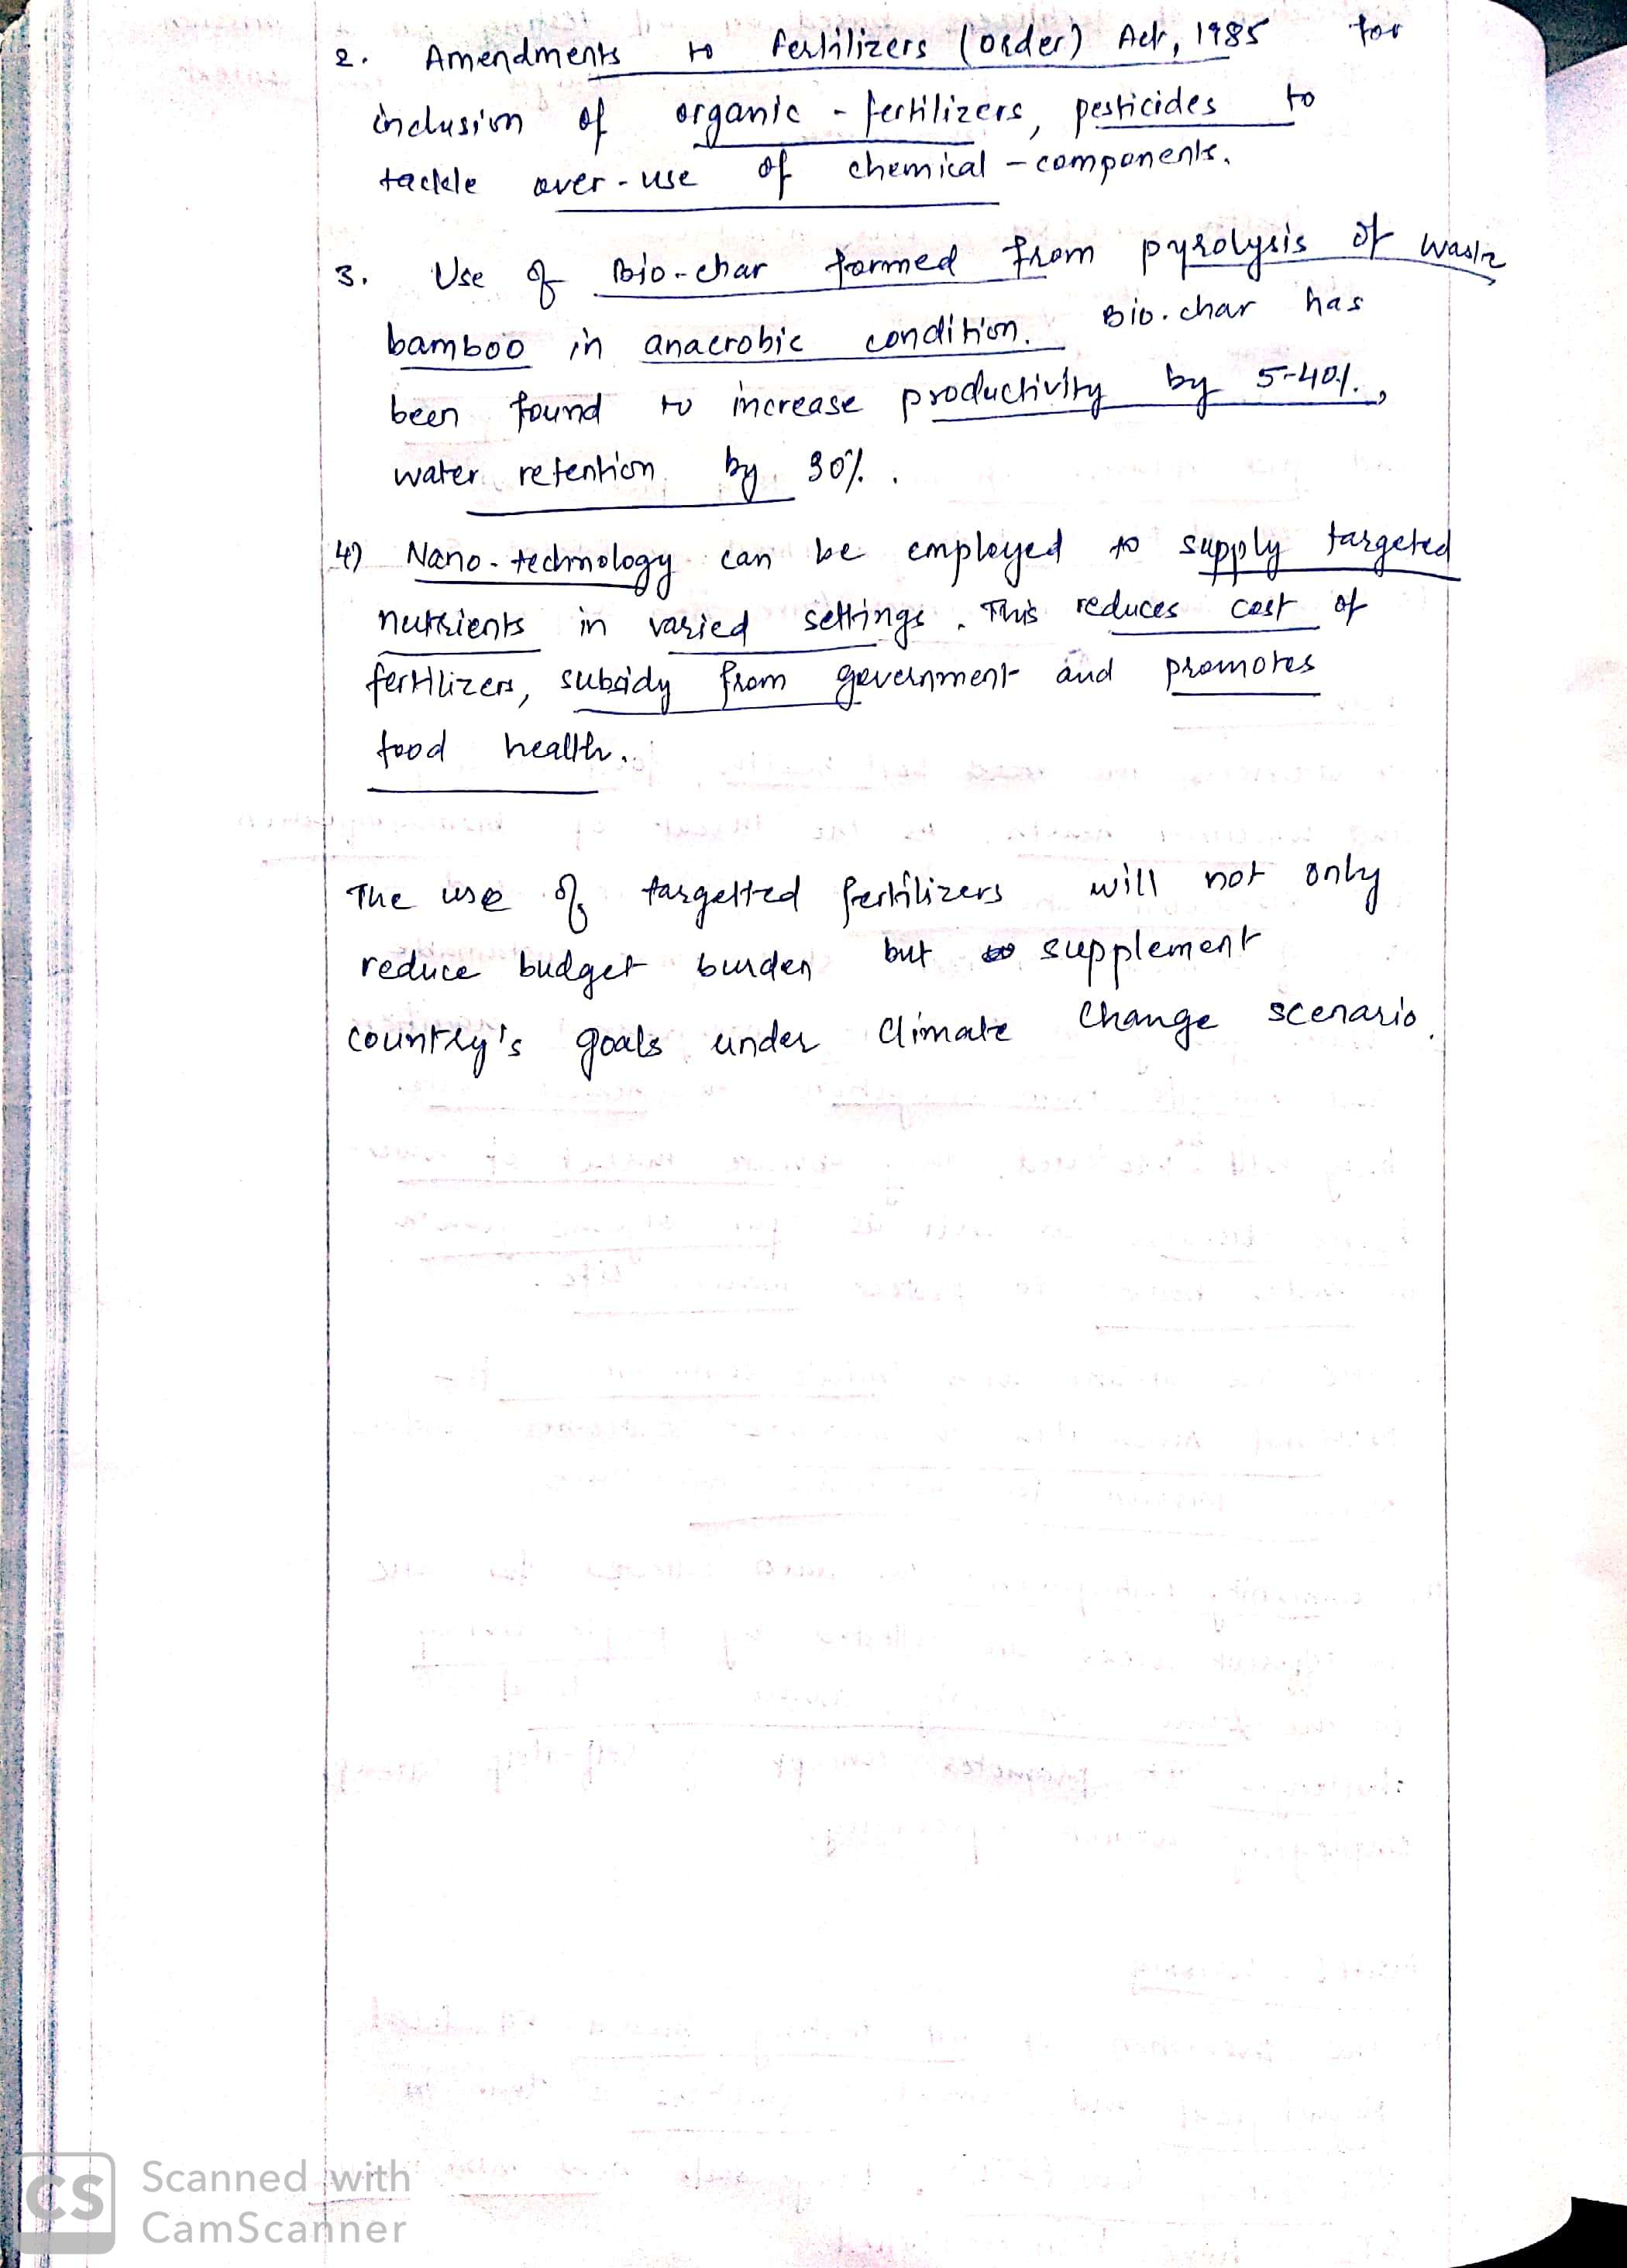 2. Amendments to Fertilizers (order) Act, 1985 for
inclusion of organic - fertilizers, pesticides to
tackle over-use of chemical - components.
3. Use of Bio-char formed from pyrolysis of waste
bamboo in anaerobic condition. Bio-char has
been found to increase productivity by 5-40%,
water retention by 30%.
4) Nano-technology can be employed to supply targeted
nutrients in varied settings. This reduces cost of
fertilizers, subsidy from government and promotes
food health.
The use of targetted fertilizers will not only
reduce budget burden but supplement
country's goals under Climate Change scenario.
CS Scanned with
CamScanner